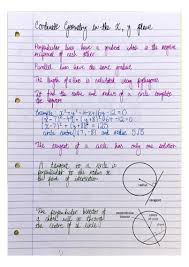 Coordinate Geometry in the x, y plane
Perpendicular lines have a gradient which is the negative
reciprocal of each other
Parallel lines have the same gradient
The length of a line is calculated using pythagoras
To find the centre and radius of a circle complete
the square
Example
circle centre and radius
The tangent of a circle has only one solution
A tangent to a circle is
perpendicular to the radius at
the point of intersection
radius
tangent
The perpendicular bisector of
a chord will go through
the centre of a circle